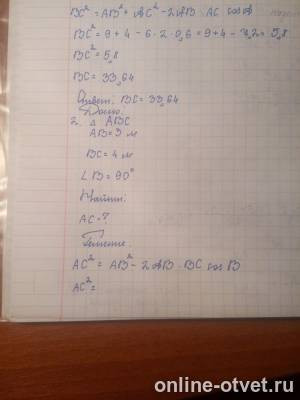 BC² = AB² + AC² - 2AB · AC cos A
BC² = 9 + 4 - 6 · 2 · 0,6 = 9 + 4 - 7,2 = 5,8
BC² = 5,8
BC = 33,64
Ответ: BC = 33,64
Дано:
2. △ ABC
AB = 3 м
BC = 4 м
∠B = 90°
Найти:
AC = ?
Решение.
AC² = AB² - 2AB · BC cos B
AC² =
online-otvet.ru